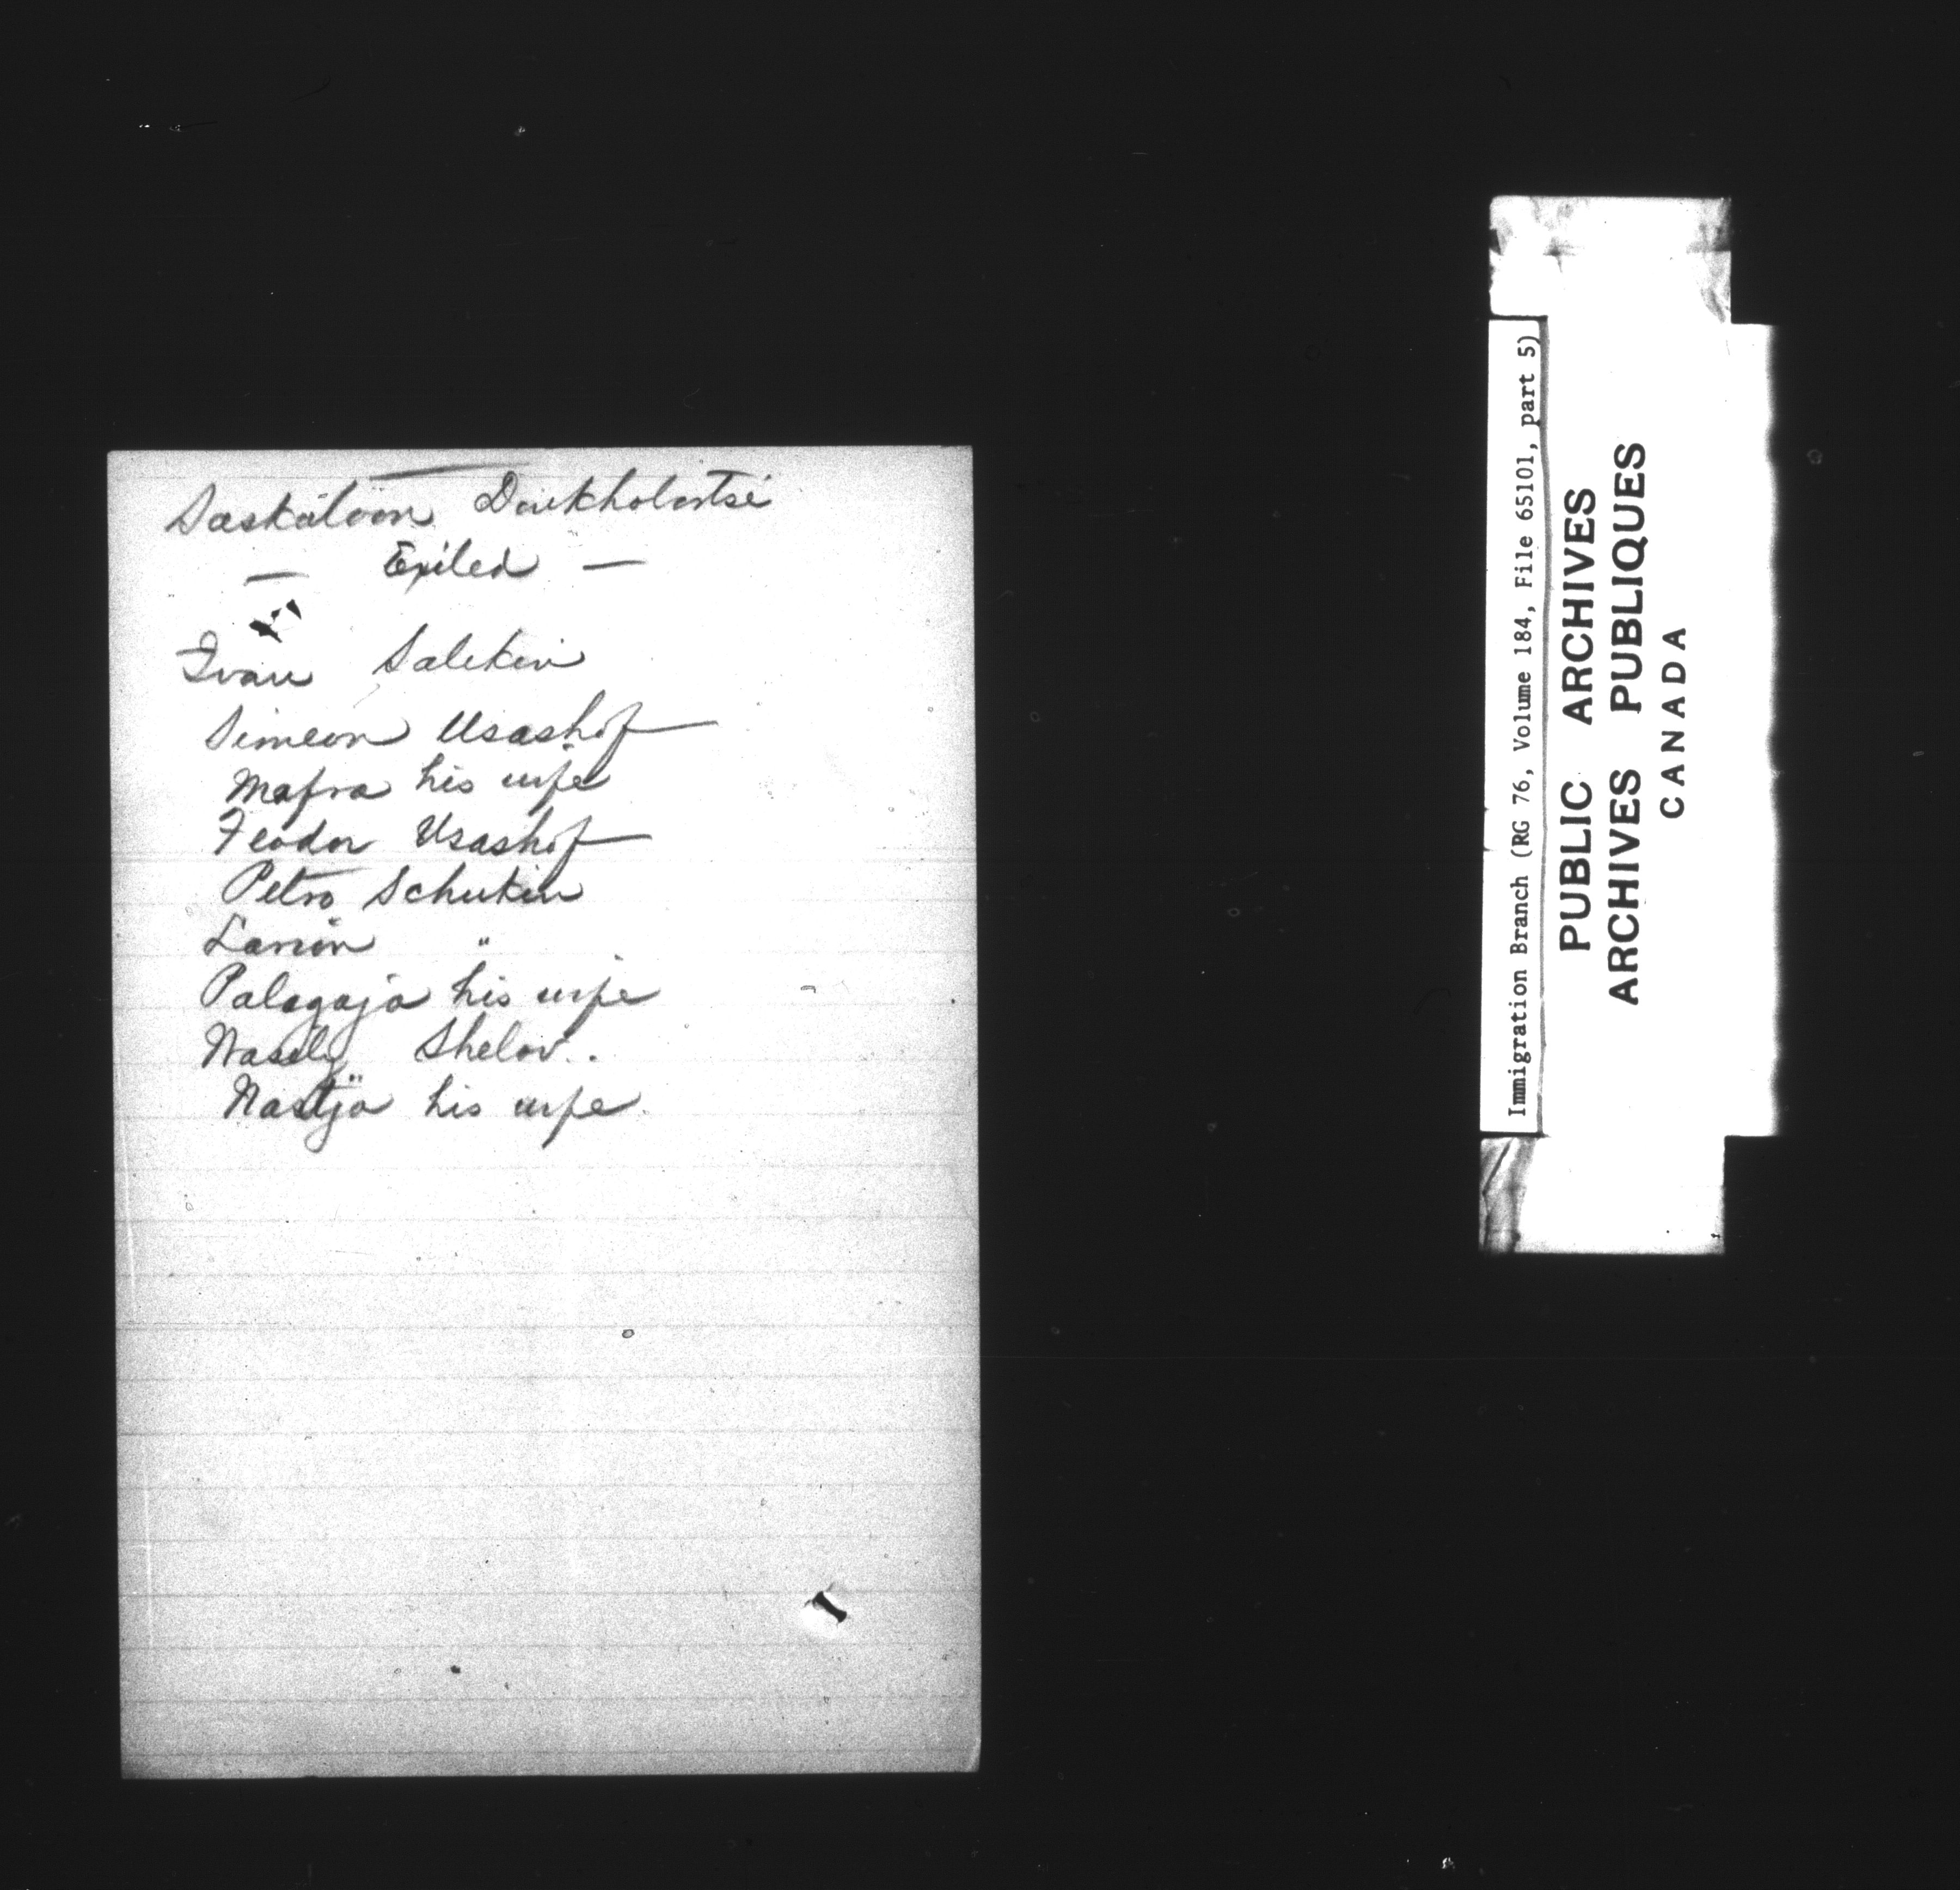 Saskatoon Doukhobortsi
— Exiled —
Ivan Salikin
Simeon Usashof
Mafra his wife
Feodor Usashof
Petro Schukin
Larion "
Palagaja his wife
Wasely Shelov..
Nastja his wife.
Immigration Branch (RG 76, Volume 184, File 65101, part 5)
PUBLIC ARCHIVES
ARCHIVES PUBLIQUES
CANADA